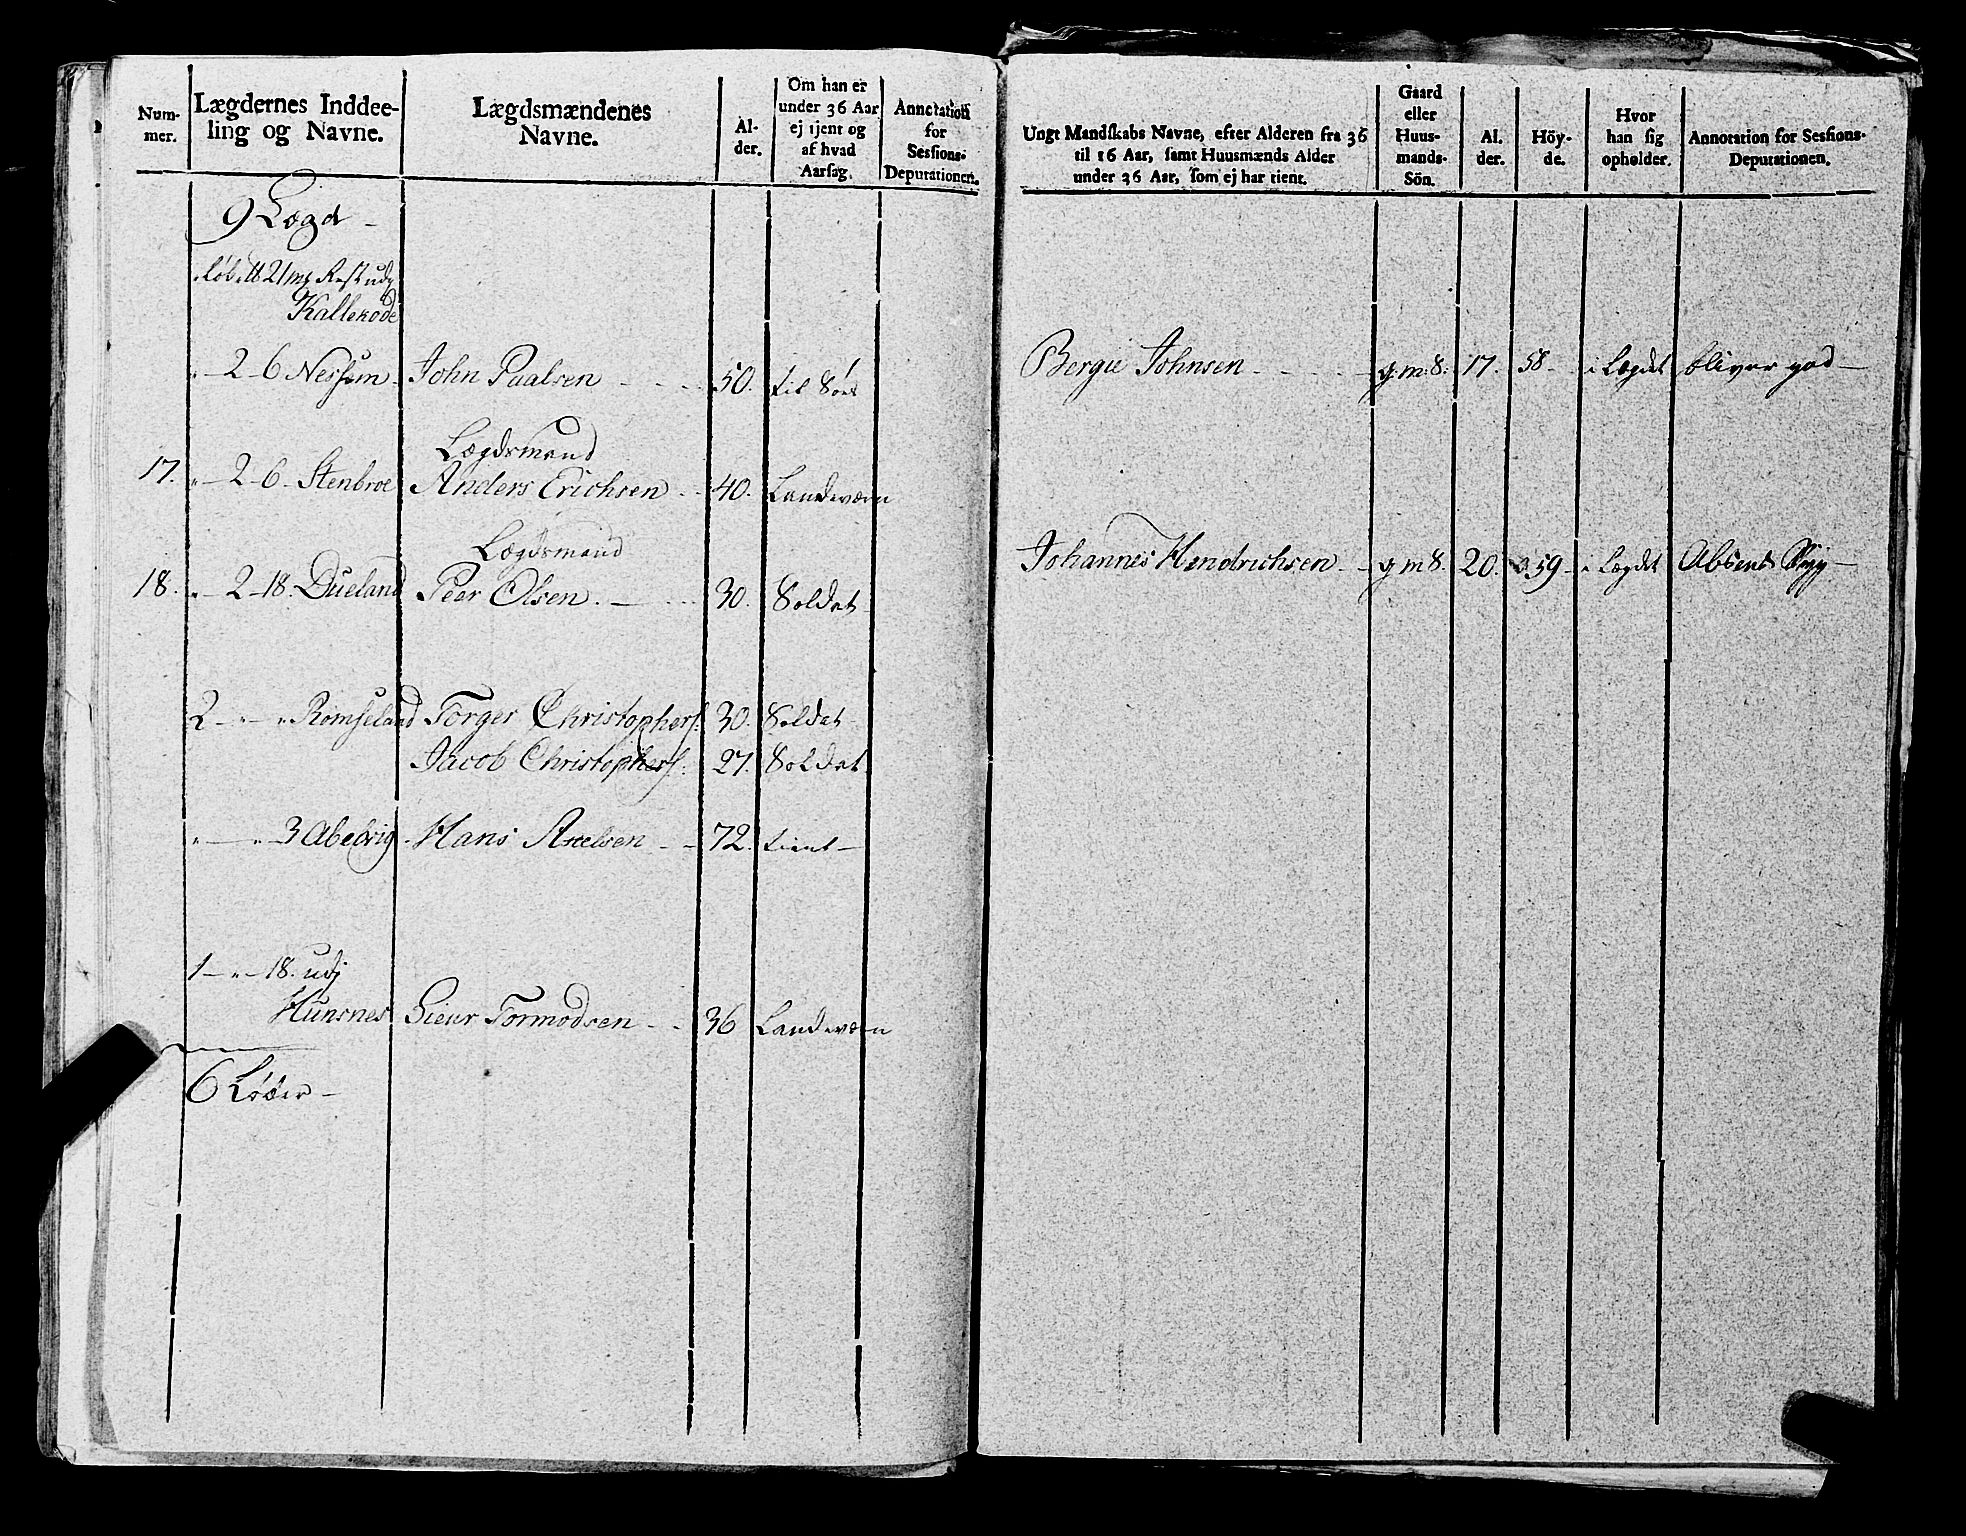 Num-
mer.
Lægdernes Inddee-
ling og Navne.
Lægdsmændenes
Navne.
Al-
der.
Om han er
under 36 Aar
ej tjent og
af hvad
Aarsag.
Annotation
for
Sessions-
Deputationen.
9 Lægd -
Løb ℔ 21 mk Rest udj
Kallekode
" - 2 - 6 Nessum - John Paalsen - - - - 50. til Søes
Lægdsmand
17. " - 2 - 6 - Stenbroe Anders Erichsen - - 40. Landeværn
Lægdsmand
18. " - 2 - 18. Dueland Peer Olsen. - - - - 30. Soldat
2 - " - " Romseland Torger Christophers: 30. Soldat
Jacob Christophers: 27. Soldat
" - " - 3 Abelvig - Hans Axelsen - - 72. tient -
1 - " - 18. udj
Hunsnes Sieur Tormodsen - - 36 Landeværn
6 Løber -
Ungt Mandskabs Navne, efter Alderen fra 36
til 16 Aar, samt Huusmænds Alder
under 36 Aar, som ej har tient.
Gaard
eller
Huus-
mands-
Sön.
Al.
der.
Höy-
de.
Hvor
han sig
opholder.
Annotation for Sessions-
Deputationen.
Bergie Johnsen - - - - - g: m: 8: 17. 58 - i Lægdet bliver god -
Johannes Hendrichsen - - g m 8. 20. 59 - i Lægdet Absent